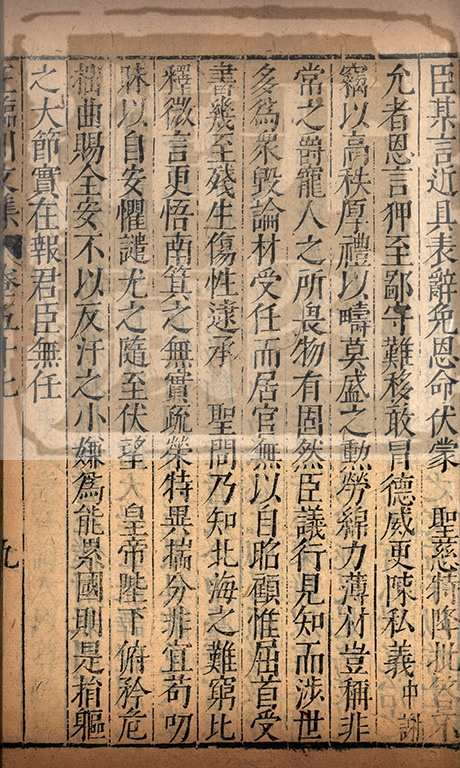 臣某言近具表辭免恩命伏蒙　聖慈特降批答不
允者恩言狎至鄙守難移敢冒德威更陳私義中謝
竊以高秩厚禮以疇莫盛之勲勞綿力薄材豈稱非
常之爵寵人之所畏物有固然臣議行見知而涉世
多爲衆毀論材受任而居官無以自昭顧惟屈首受
書幾至殘生傷性逮承　聖問乃知北海之難窮比
釋微言更悟南箕之無實疏榮特異揣分非宜苟叨
昧以自安懼譴尤之隨至伏望　皇帝陛下俯矜危
拙曲賜全安不以反汗之小嫌爲能累國則是捐軀
之大節實在報君臣無任
王臨川文集　卷五十七　九